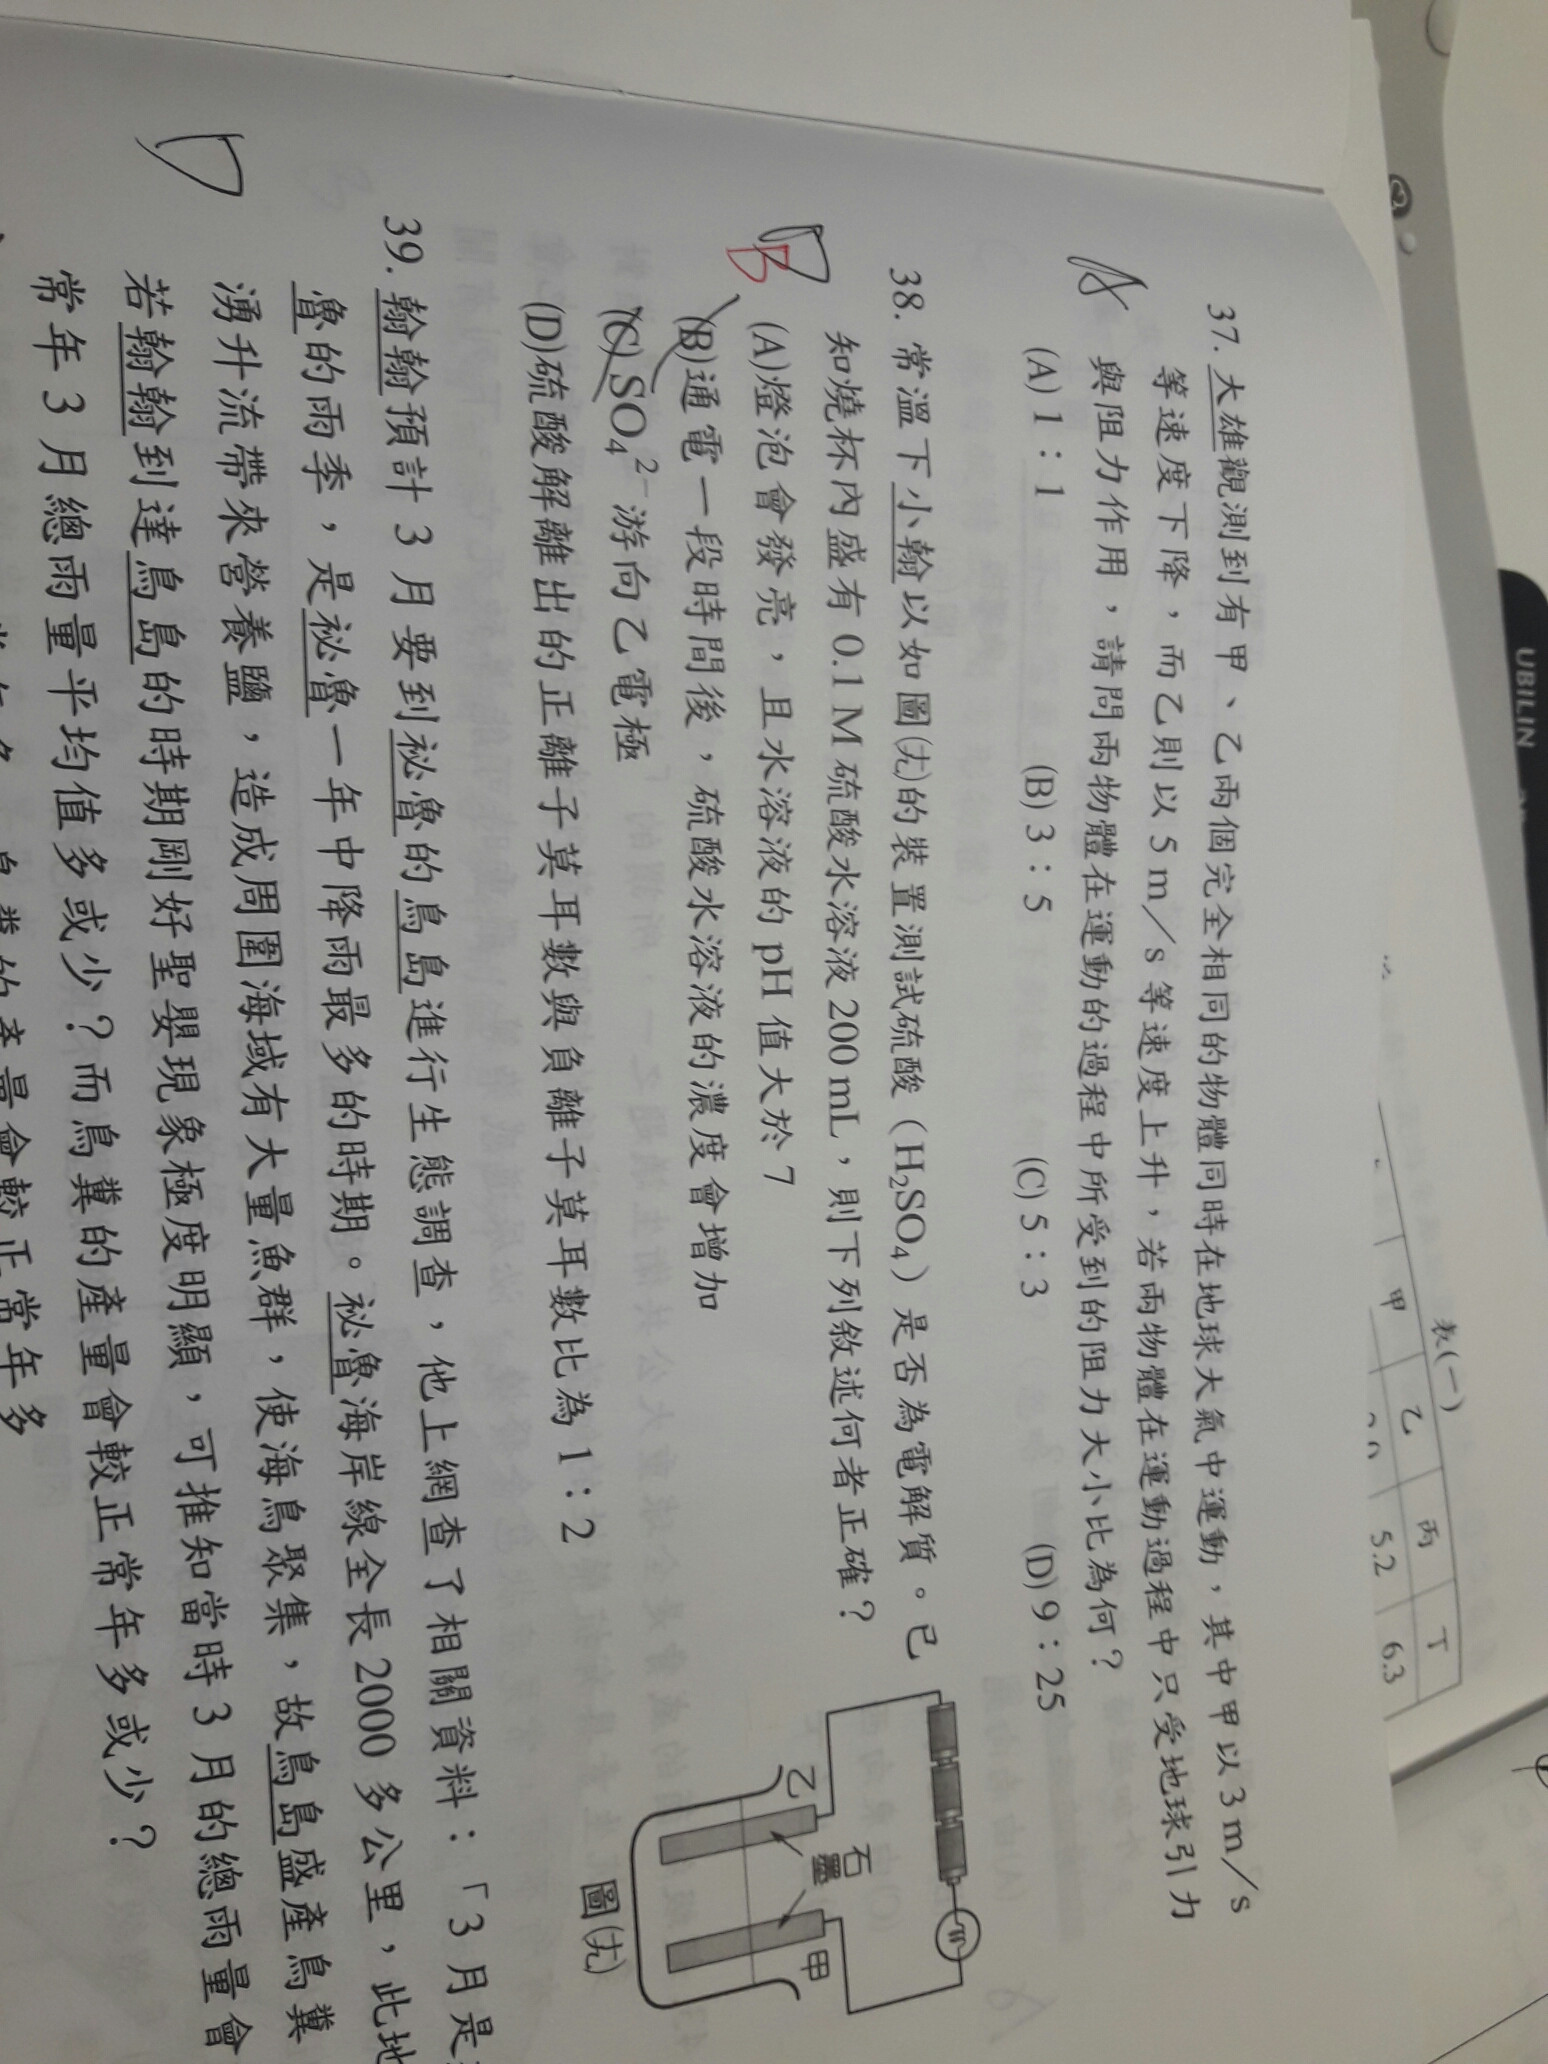 UBILIN
表(一)
甲 乙 丙 丁
5.2 6.3
A
37. 大雄觀測到有甲、乙兩個完全相同的物體同時在地球大氣中運動，其中甲以 3 m／s
等速度下降，而乙則以 5 m／s 等速度上升，若兩物體在運動過程中只受地球引力
與阻力作用，請問兩物體在運動的過程中所受到的阻力大小比為何？
(A) 1：1 (B) 3：5 (C) 5：3 (D) 9：25
B
38. 常溫下小翰以如圖(九)的裝置測試硫酸（H₂SO₄）是否為電解質。已
知燒杯內盛有 0.1 M 硫酸水溶液 200 mL，則下列敘述何者正確？
(A)燈泡會發亮，且水溶液的 pH 值大於 7
(B)通電一段時間後，硫酸水溶液的濃度會增加
(C) SO₄²⁻ 游向乙電極
(D)硫酸解離出的正離子莫耳數與負離子莫耳數比為 1：2
乙
石墨
甲
圖(九)
D
39. 翰翰預計 3 月要到祕魯的鳥島進行生態調查，他上網查了相關資料：「3 月是
魯的雨季，是祕魯一年中降雨最多的時期。祕魯海岸線全長 2000 多公里，此地
湧升流帶來營養鹽，造成周圍海域有大量魚群，使海鳥聚集，故鳥島盛產鳥糞
若翰翰到達鳥島的時期剛好聖嬰現象極度明顯，可推知當時 3 月的總雨量會
常年 3 月總雨量平均值多或少？而鳥糞的產量會較正常年多或少？
會較正常年多